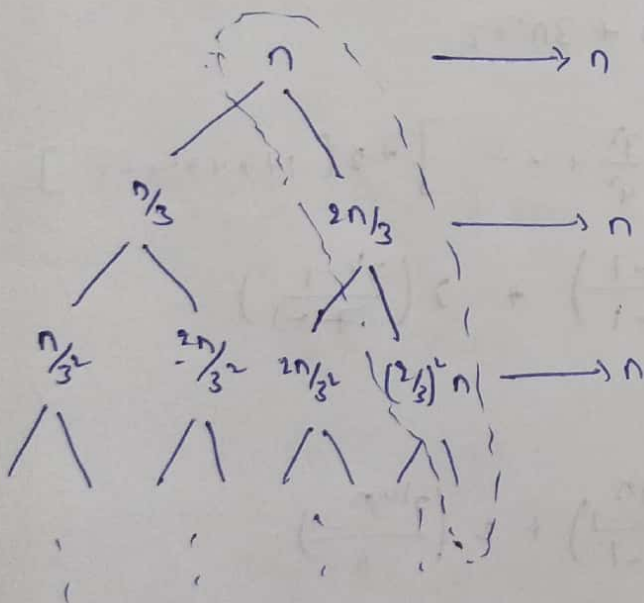 n → n
n/3 2n/3 → n
n/3² 2n/3² 2n/3² (2/3)² n → n